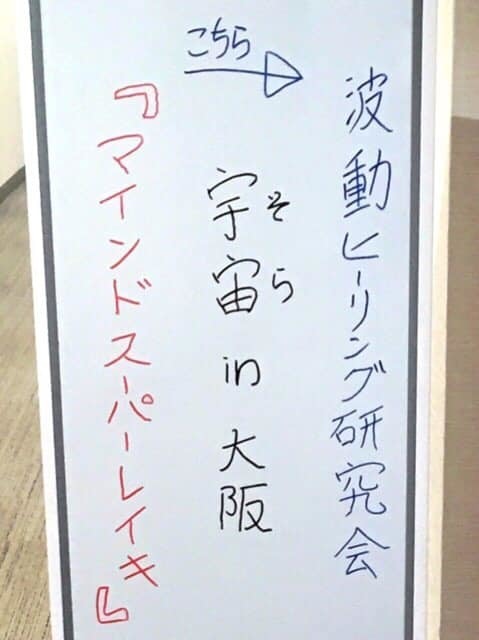 こちら
波動ヒーリング研究会
宇宙 in 大阪
そら
『マインドスーパーレイキ』